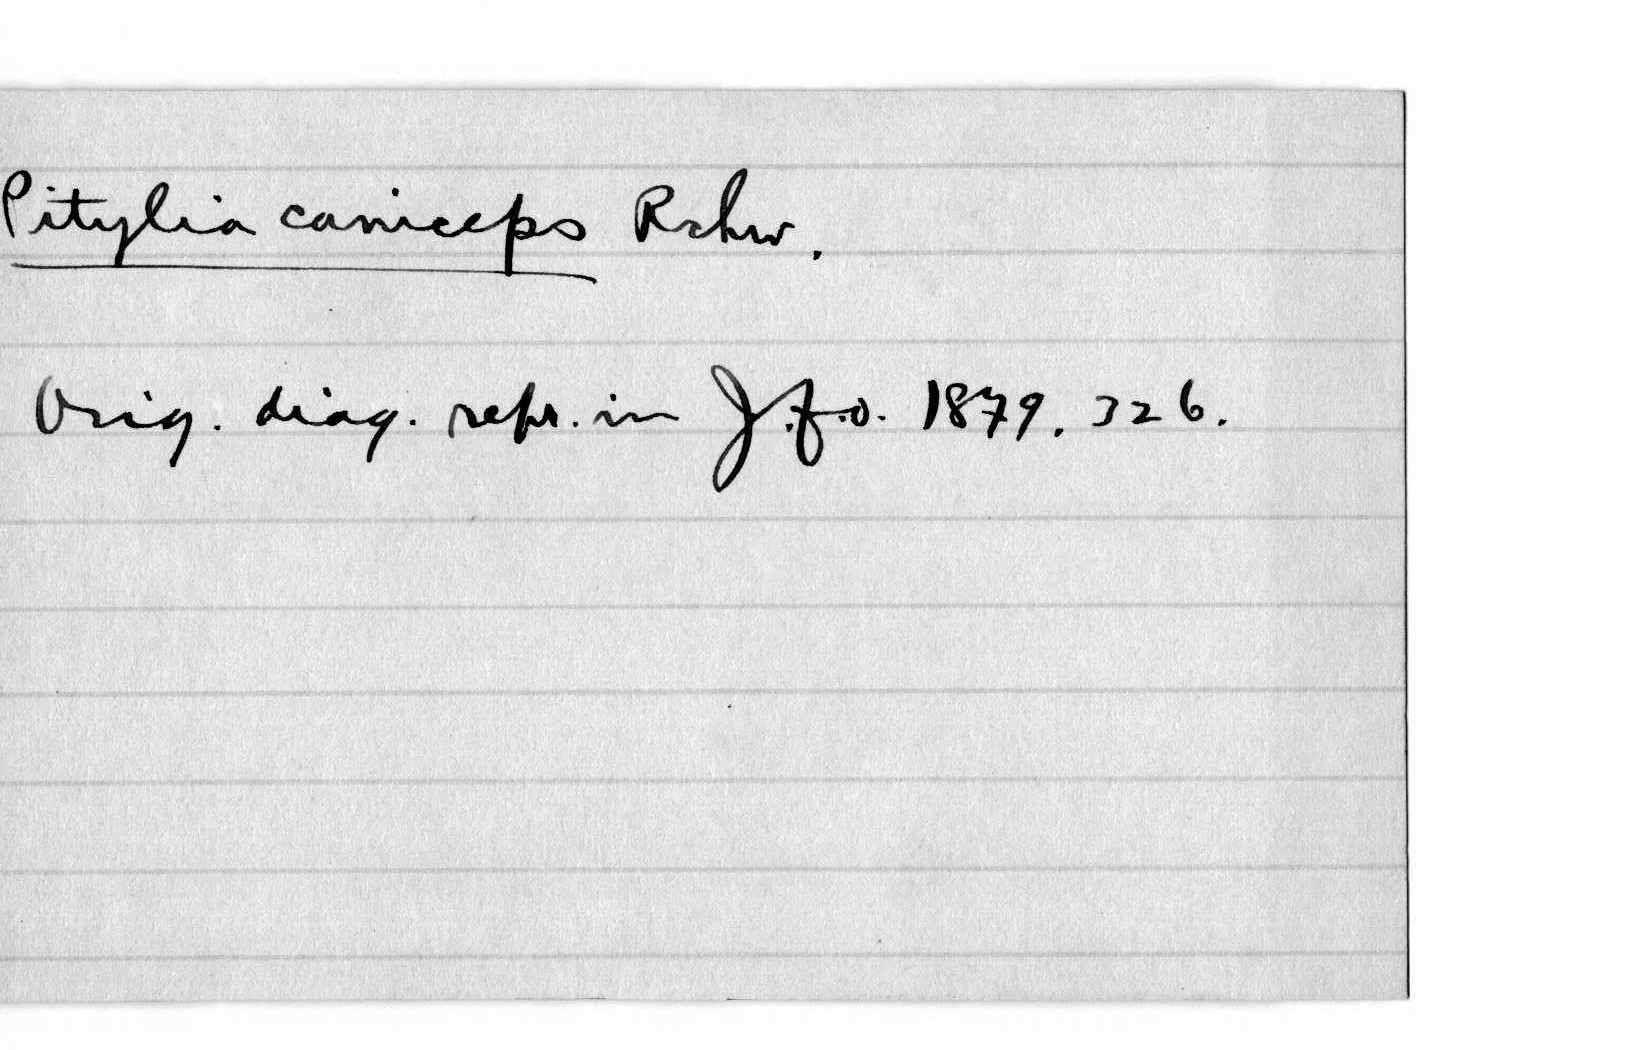 Pitylia caniceps Rchw.
Orig. diag. repr. in J.f.O. 1879. 326.